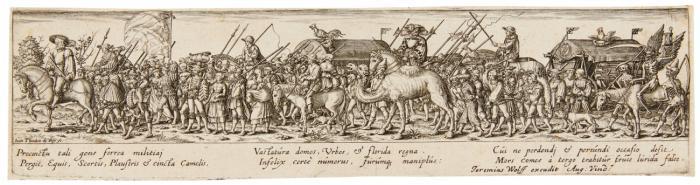 Ioan Theodor de Bry fe.
Præcinctu tali gens ferrea militiaj
Pergit, Equis, Scortis, Plaustris & cincta Camelis.
Vastatura domos, Urbes, & florida regna.
Infelix certè numerus, furumq; maniplus:
Cui ne perdendj & pereundi occasio desit.
Mors Comes à tergo trahitur lurida falce.
Jeremias Wolff excudit Aug. Vind.